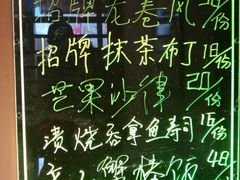 招牌龙卷风 份
招牌抹茶布丁18/份
芒果沙律20/份
渍烧吞拿鱼寿司15/份
蟹 饭48/